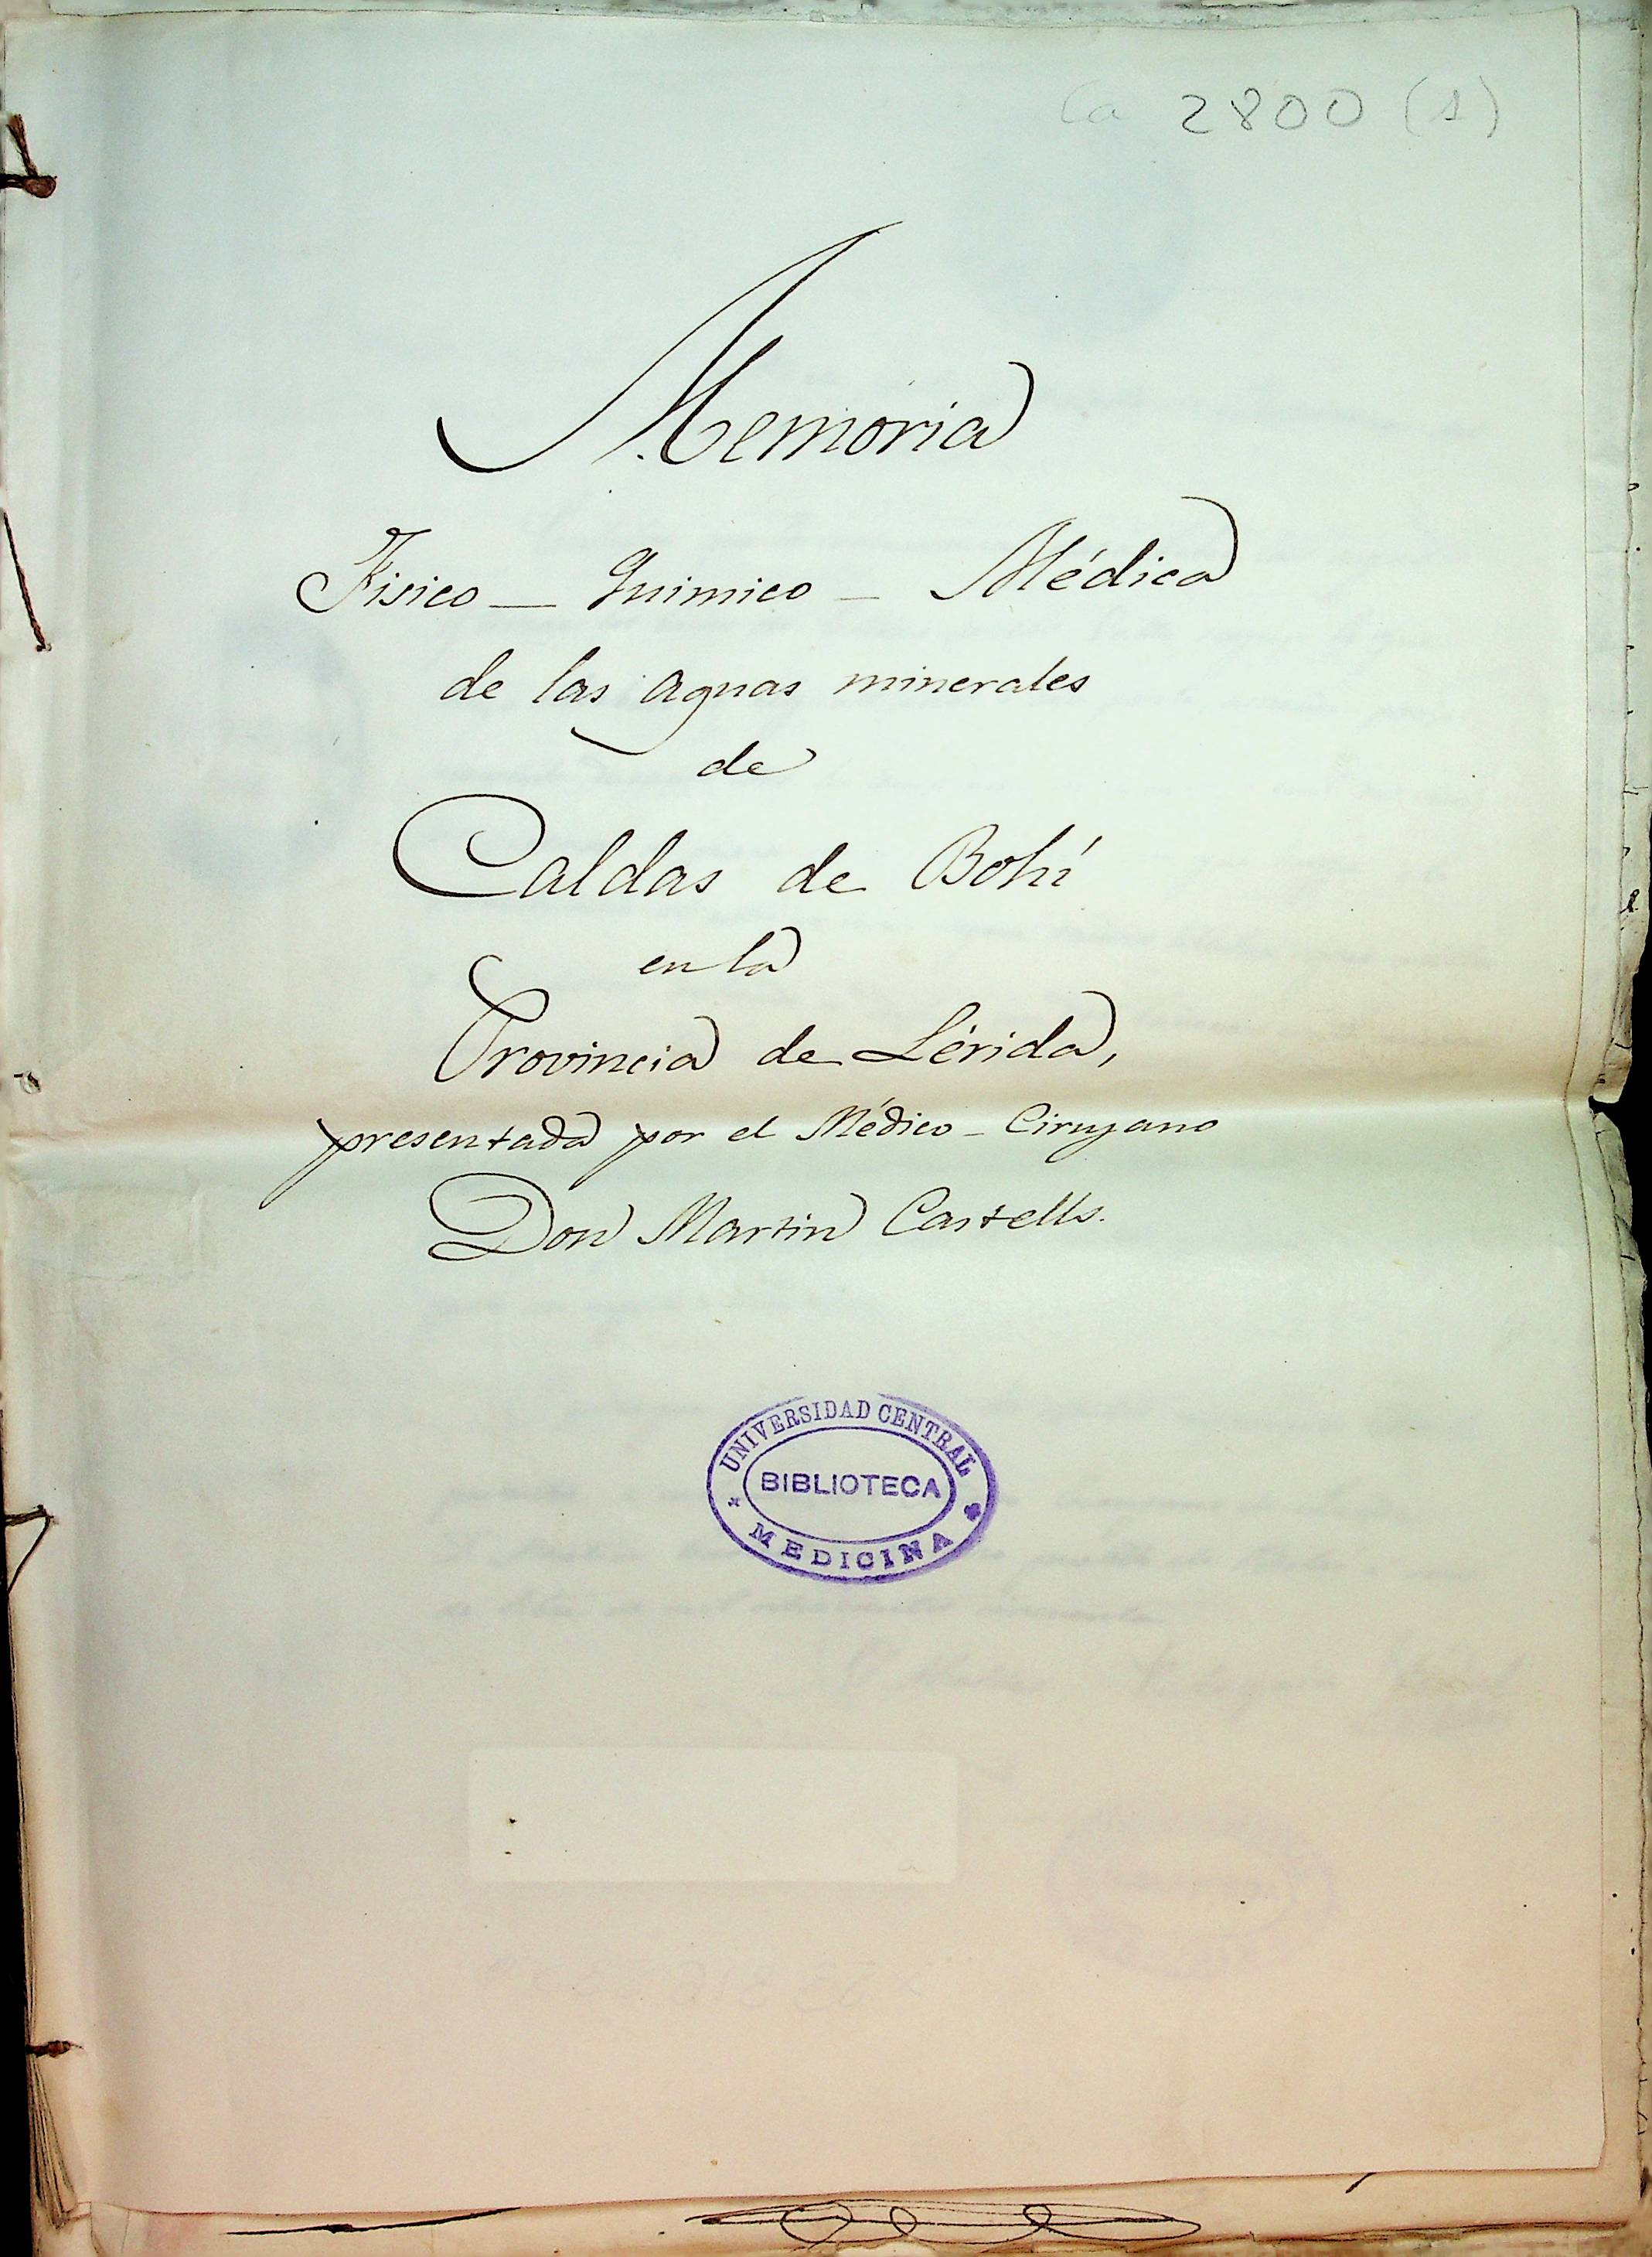 Ca 2800 (1)
Memoria
Fisico - Quimico - Médica
de las aguas minerales
de
Caldas de Bohí
en la
Provincia de Lérida,
presentada por el Médico - Cirujano
Don Martin Castells.
UNIVERSIDAD CENTRAL
BIBLIOTECA
MEDICINA